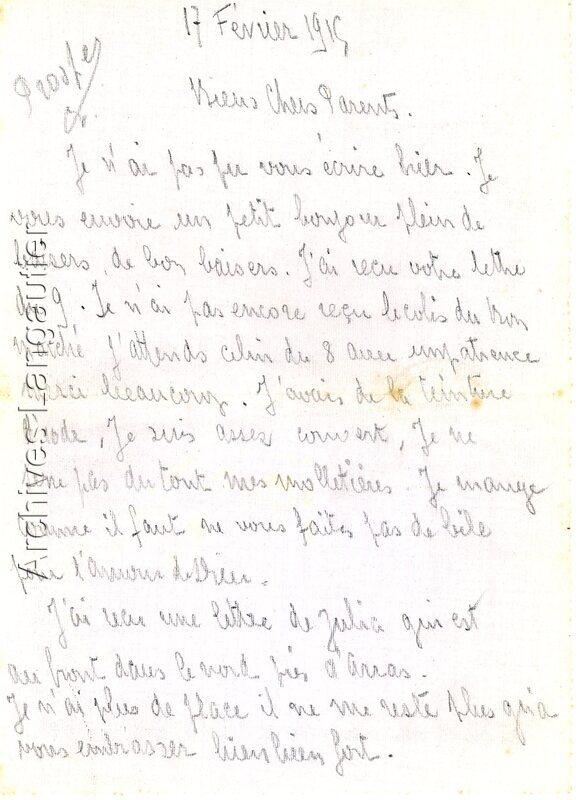 17 Février 1915
Biens Chers Parents.
Je n'ai pas pu vous écrire hier. Je
vous envoie un petit bonjour plein de
baisers, de bon baisers. J'ai reçu votre lettre
du 9. Je n'ai pas encore reçu le colis du Bon
Marché j'attends celui du 8 avec impatience
Merci beaucoup. J'avais de la teinture
d'iode, Je suis assez couvert, Je ne
pas du tout mes molletières. Je mange
comme il faut ne vous faites pas de bile
pour l'amour de Dieu.
J'ai reçu une lettre de Julia qui est
au front dans le nord près d'Arras.
Je n'ai plus de place il ne me reste plus qu'a
vous embrasser bien bien fort.
Archives Largaultier